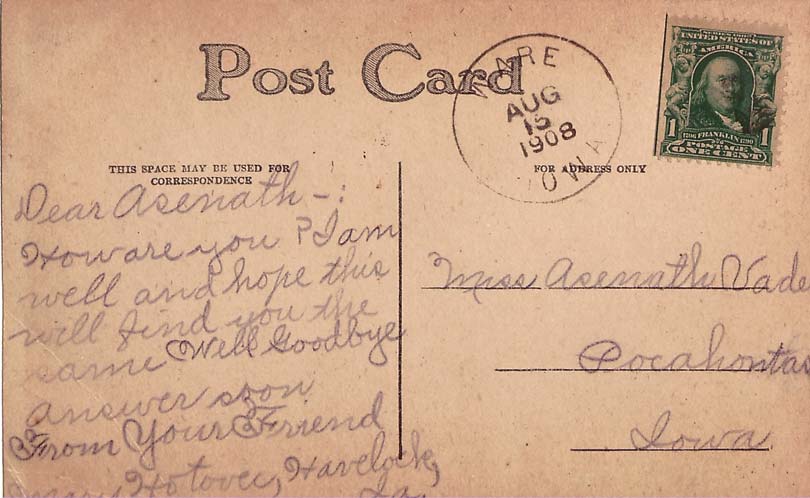 Post Card
WARE
AUG
15
1908
IOWA
SERIES 1902
UNITED STATES OF
AMERICA
1706 FRANKLIN 1790
1 POSTAGE 1
ONE CENT
THIS SPACE MAY BE USED FOR
CORRESPONDENCE
FOR ADDRESS ONLY
Dear Asenath -:
How are you ? I am
well and hope this
will find you the
same Well Goodbye
answer soon
From Your Frriend
Hotovec, Havelock,
Ia
Miss Asenath Vade
Pocahontas
Iowa